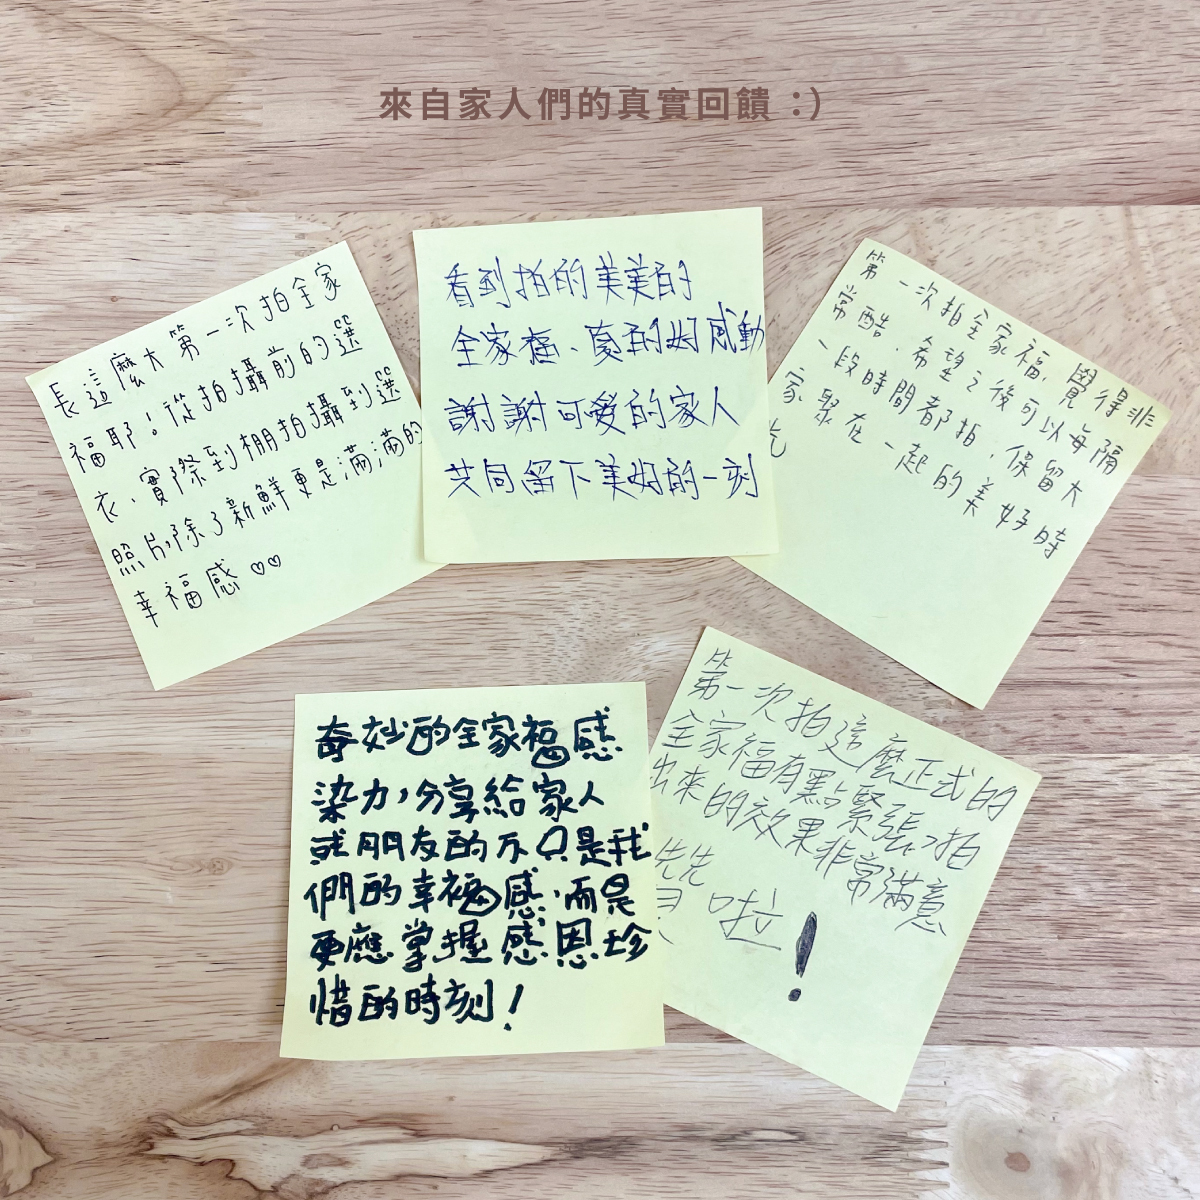 來自家人們的真實回饋 :)
長這麼大第一次拍全家
福耶！從拍攝前的選
衣、實際到棚拍攝到選
照片,除了新鮮更是滿滿的
幸福感♡♡
看到拍的美美的
全家福、真的好感動
謝謝可愛的家人
共同留下美好的一刻
第一次拍全家福,覺得非
常酷,希望之後可以每隔
一段時間都拍,保留大
家聚在一起的美好時
奇妙的全家福感
染力,分享給家人
或朋友的不只是我
們的幸福感,而是
更應掌握感恩珍
惜的時刻!
第一次拍這麼正式的
全家福有點緊張,拍
出來的效果非常滿意
啦!